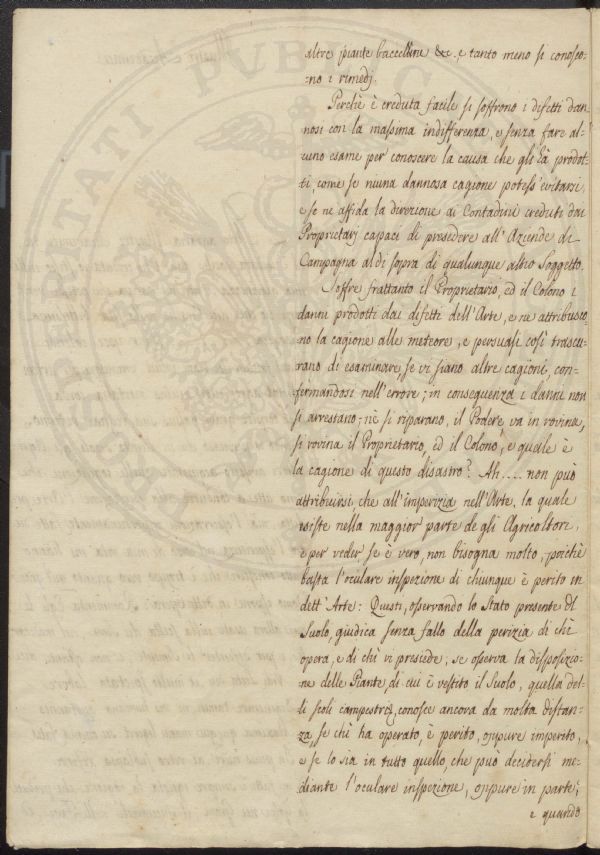 altre piante baccelline &c., e tanto meno si conosco-
=no i rimedj.
Perchè è creduta facile si soffrono i difetti dan
nosi con la massima indifferenza, e senza fare al-
cuno esame per conoscere la causa che gli à prodot-
ti, come se niuna dannosa cagione potess' evitarsi,
e se ne affida la direzione ai Contadini creduti dai
Proprietarj capaci di presedere all' Aziende di
Campagna al di sopra di qualunque altro Soggetto.
Soffre frattanto il Proprietario, ed il Colono i
danni prodotti dai difetti dell' Arte, e ne attribusco=
no la cagione alle meteore, e persuasi così trascu-
rano di esaminare, se vi siano altre cagioni, con-
fermandosi nell' errore; in conseguenza i danni non
si arrestano, nè si riparano, il Podere va in rovina,
si rovina il Proprietario, ed il Colono, e quale è
la cagione di questo disastro? Ah.... non può
attribuirsi, che all' imperizia nell' Arte, la quale
esiste nella maggior parte de gli Agricoltori,
e per veder se è vero, non bisogna molto, poichè
basta l' oculare inspezione di chiunque è perito in
dett' Arte: Questi, osservando lo Stato presente del
Suolo, giudica senza fallo della perizia di chi
opera, e di chi vi presiede; se osserva la disposizio-
ne delle Piante, di cui è vestito il Suolo, quella del-
li scoli campestri, conosce ancora da molta distan-
za, se chi ha operato, è perito, oppure imperito,
e se lo sia in tutto quello, che può decidersi me-
diante l' oculare inspezione, oppure in parte;
e quando
PUBLIC